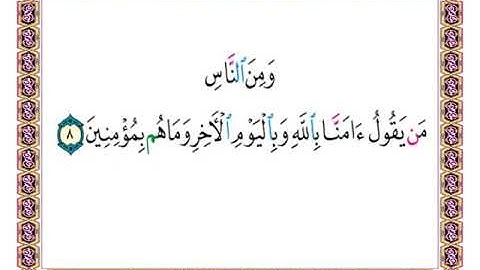 وَمِنَ ٱلنَّاسِ
مَن يَقُولُ ءَامَنَّا بِٱللَّهِ وَبِٱلْيَوْمِ ٱلْأَخِرِ وَمَا هُم بِمُؤْمِنِينَ ٨